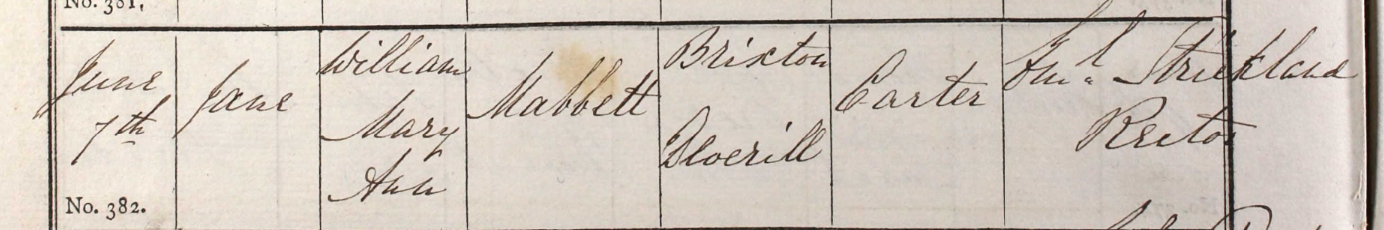 No. 381.
June
7th
No. 382.
Jane
William
Mary
Ann
Mabbett
Brixton
Deverill
Carter
Strickland
Rector